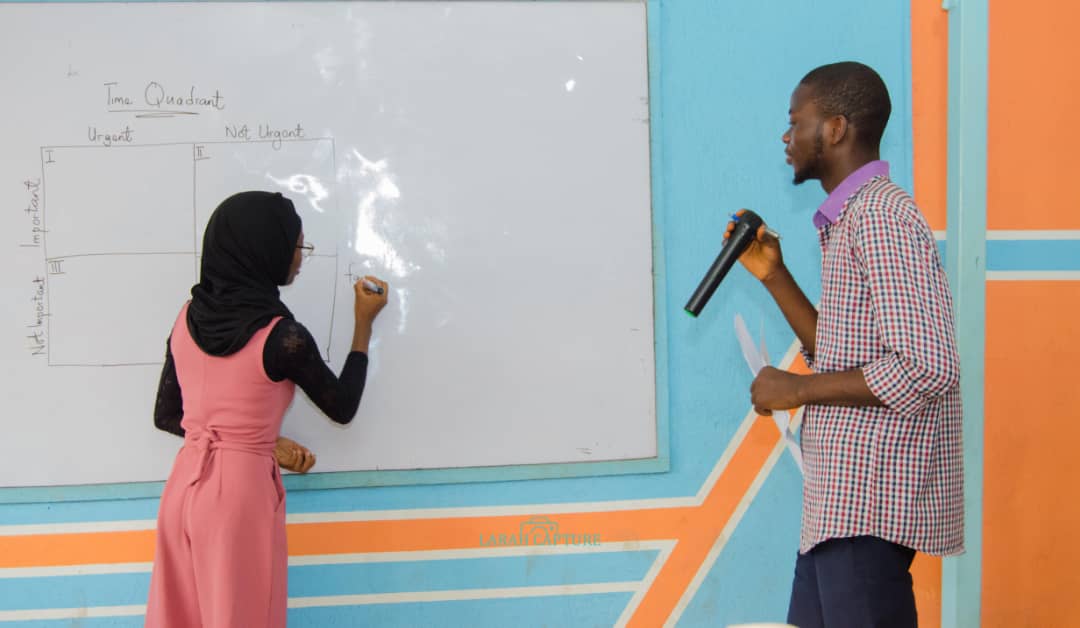 Time Quadrant
Urgent
Not Urgent
I
II
Important
III
Not Important
LARAH CAPTURE